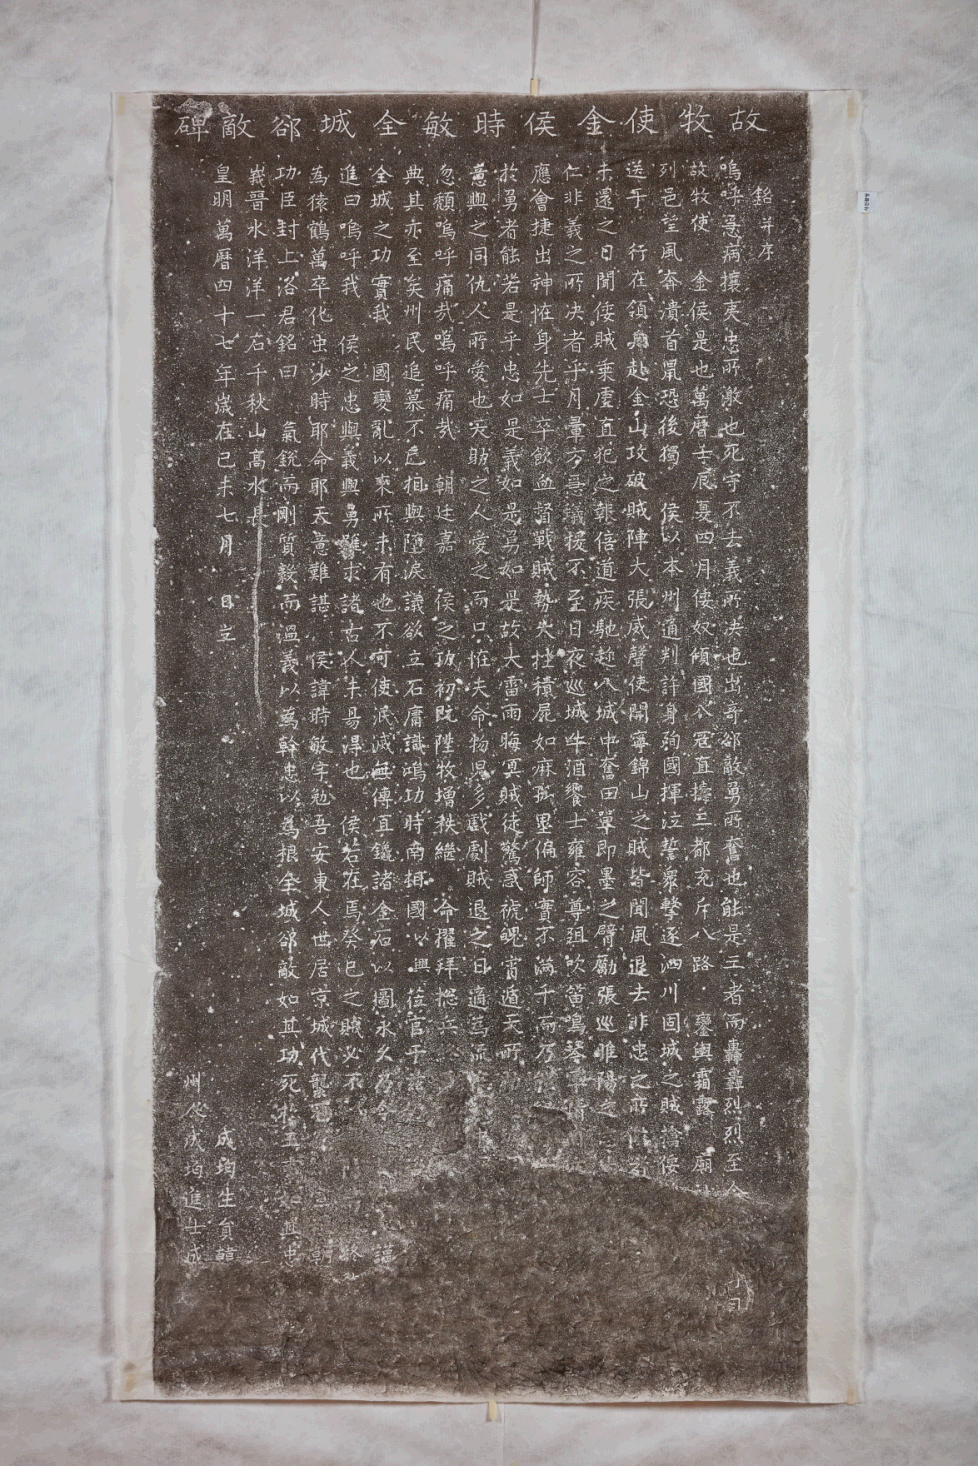 故牧使金侯時敏全城郤敵碑
銘并序
嗚呼急病攘夷忠所激也死守不去義所決也出奇郤敵勇所奮也能是三者而轟轟烈烈至今
故牧使 金侯是也萬曆壬辰夏四月倭奴傾國入寇直擣三都充斥八路 鑾輿霜露 廟
列邑望風奔潰首鼠恐後獨 侯以本州通判許身殉國揮泣誓衆擊逐泗川固城之賊擒倭
送于 行在領兵赴金山攻破賊陣大張威聲使開寧錦山之賊皆聞風退去非忠之所
未還之日聞倭賊乘虛直犯之報倍道疾馳趂入城中奮田單即墨之臂勵張巡睢陽之
仁非義之所决者乎月暈方急議援不至日夜巡城牛酒饗士雍容尊俎吹笛鳴琴
應會捷出神恠身先士卒飲血督戰賊勢大挫積屍如麻孤墨偏師實不滿千而乃
於勇者能若是乎忠如是義如是勇如是故大雷雨晦冥賊徒驚惑褫魄宵遁天所
意與之同仇人所愛也天助之人愛之而只恠夫命物兒多戱劇賊退之日適爲流
忽頹嗚呼痛哉嗚呼痛哉 朝廷嘉 侯之功初旣陞牧增秩繼 命擢拜摠兵
典其亦至矣州民追慕不已相與墮淚議欲立石庸識鴻功時南相國以興莅官于
全城之功實我 國變亂以來所未有也不可使泯滅無傳宜鑱諸金石以圖永久乃令
進曰嗚呼我 侯之忠與義與勇雖求諸古人未易得也 侯若在焉癸巳之賊必不
爲猿鶴萬卒化虫沙時耶命耶天意難諶 侯諱時敏字勉吾安東人世居京城代襲
功臣封上洛君銘曰 氣銳而剛質毅而溫義以爲幹忠以爲根全城郤敵如其功死
峩晉水洋洋一石千秋山高水長
皇明萬曆四十七年歲在己未七月 日立
成均生員韓
州人成均進士成